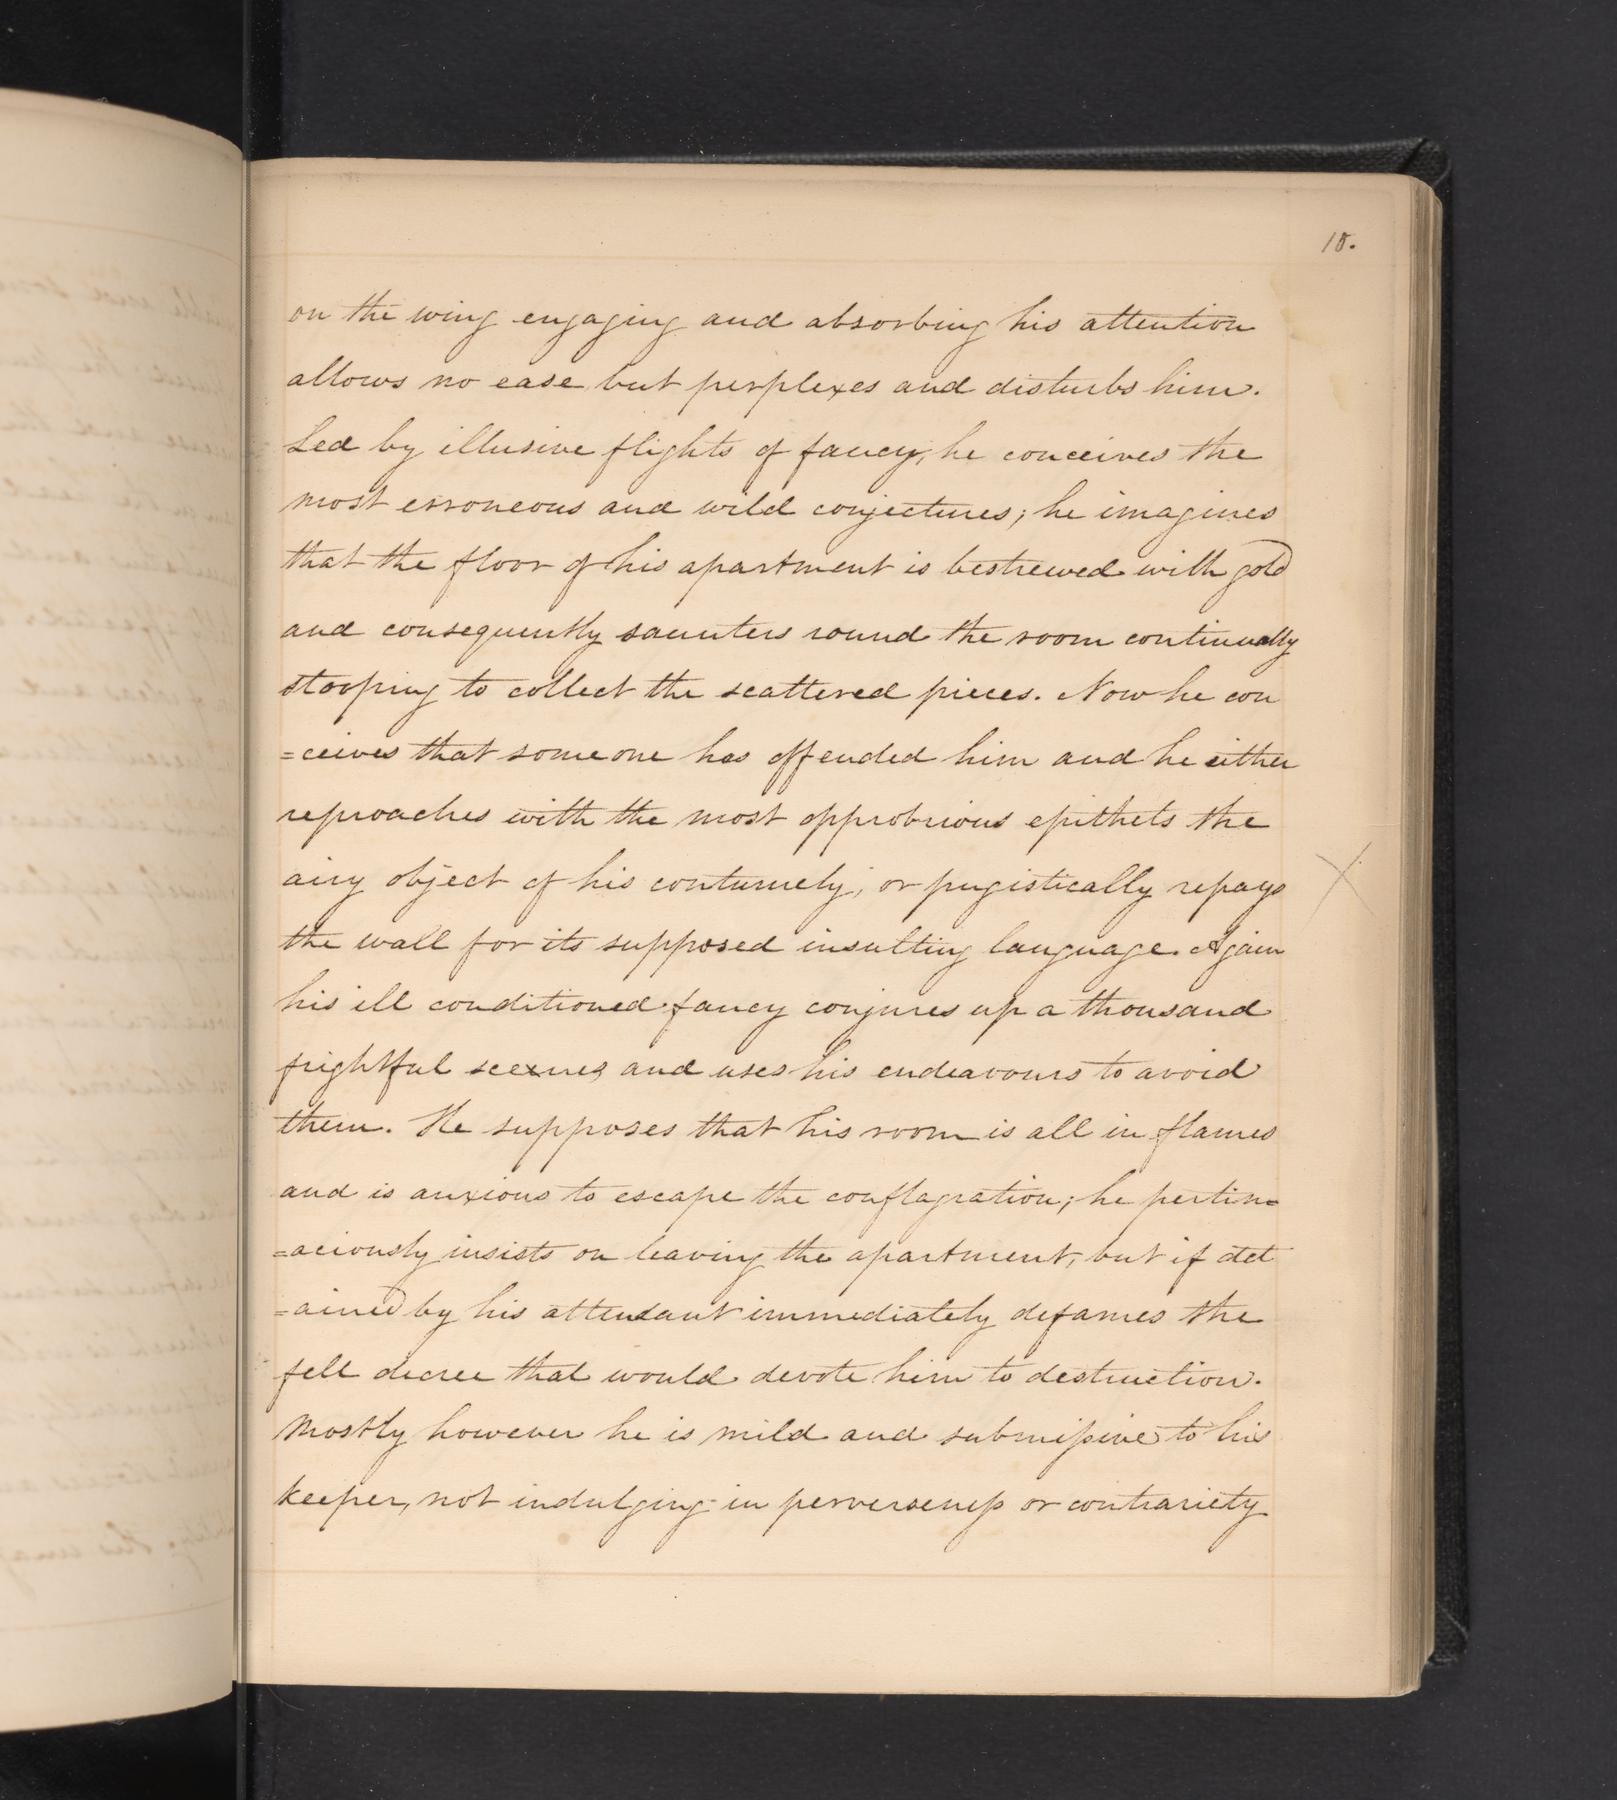 18.
on the wing engaging and absorbing his attention
allows no ease but perplexes and disturbs him.
Led by illusive flights of fancy, he conceives the
most erroneous and wild conjectures; he imagines
that the floor of his apartment is bestrewed with gold
and consequently saunters round the room continually
stooping to collect the scattered pieces. Now he con
=ceives that some one has offended him and he either
reproaches with the most opprobrious epithets the
airy object of his contumely, or pugistically repays
the wall for its supposed insulting language. Again
his ill conditioned fancy conjures up a thousand
frightful scenes and uses his endeavours to avoid
them. He supposes that his room is all in flames
and is anxious to escape the conflagration; he pertin=
=aciously insists on leaving the apartment, but if det
=ained by his attendant immediately defames the
fell decree that would devote him to destruction.
Mostly however he is mild and submissive to his
keeper, not indulging in perverseness or contrariety